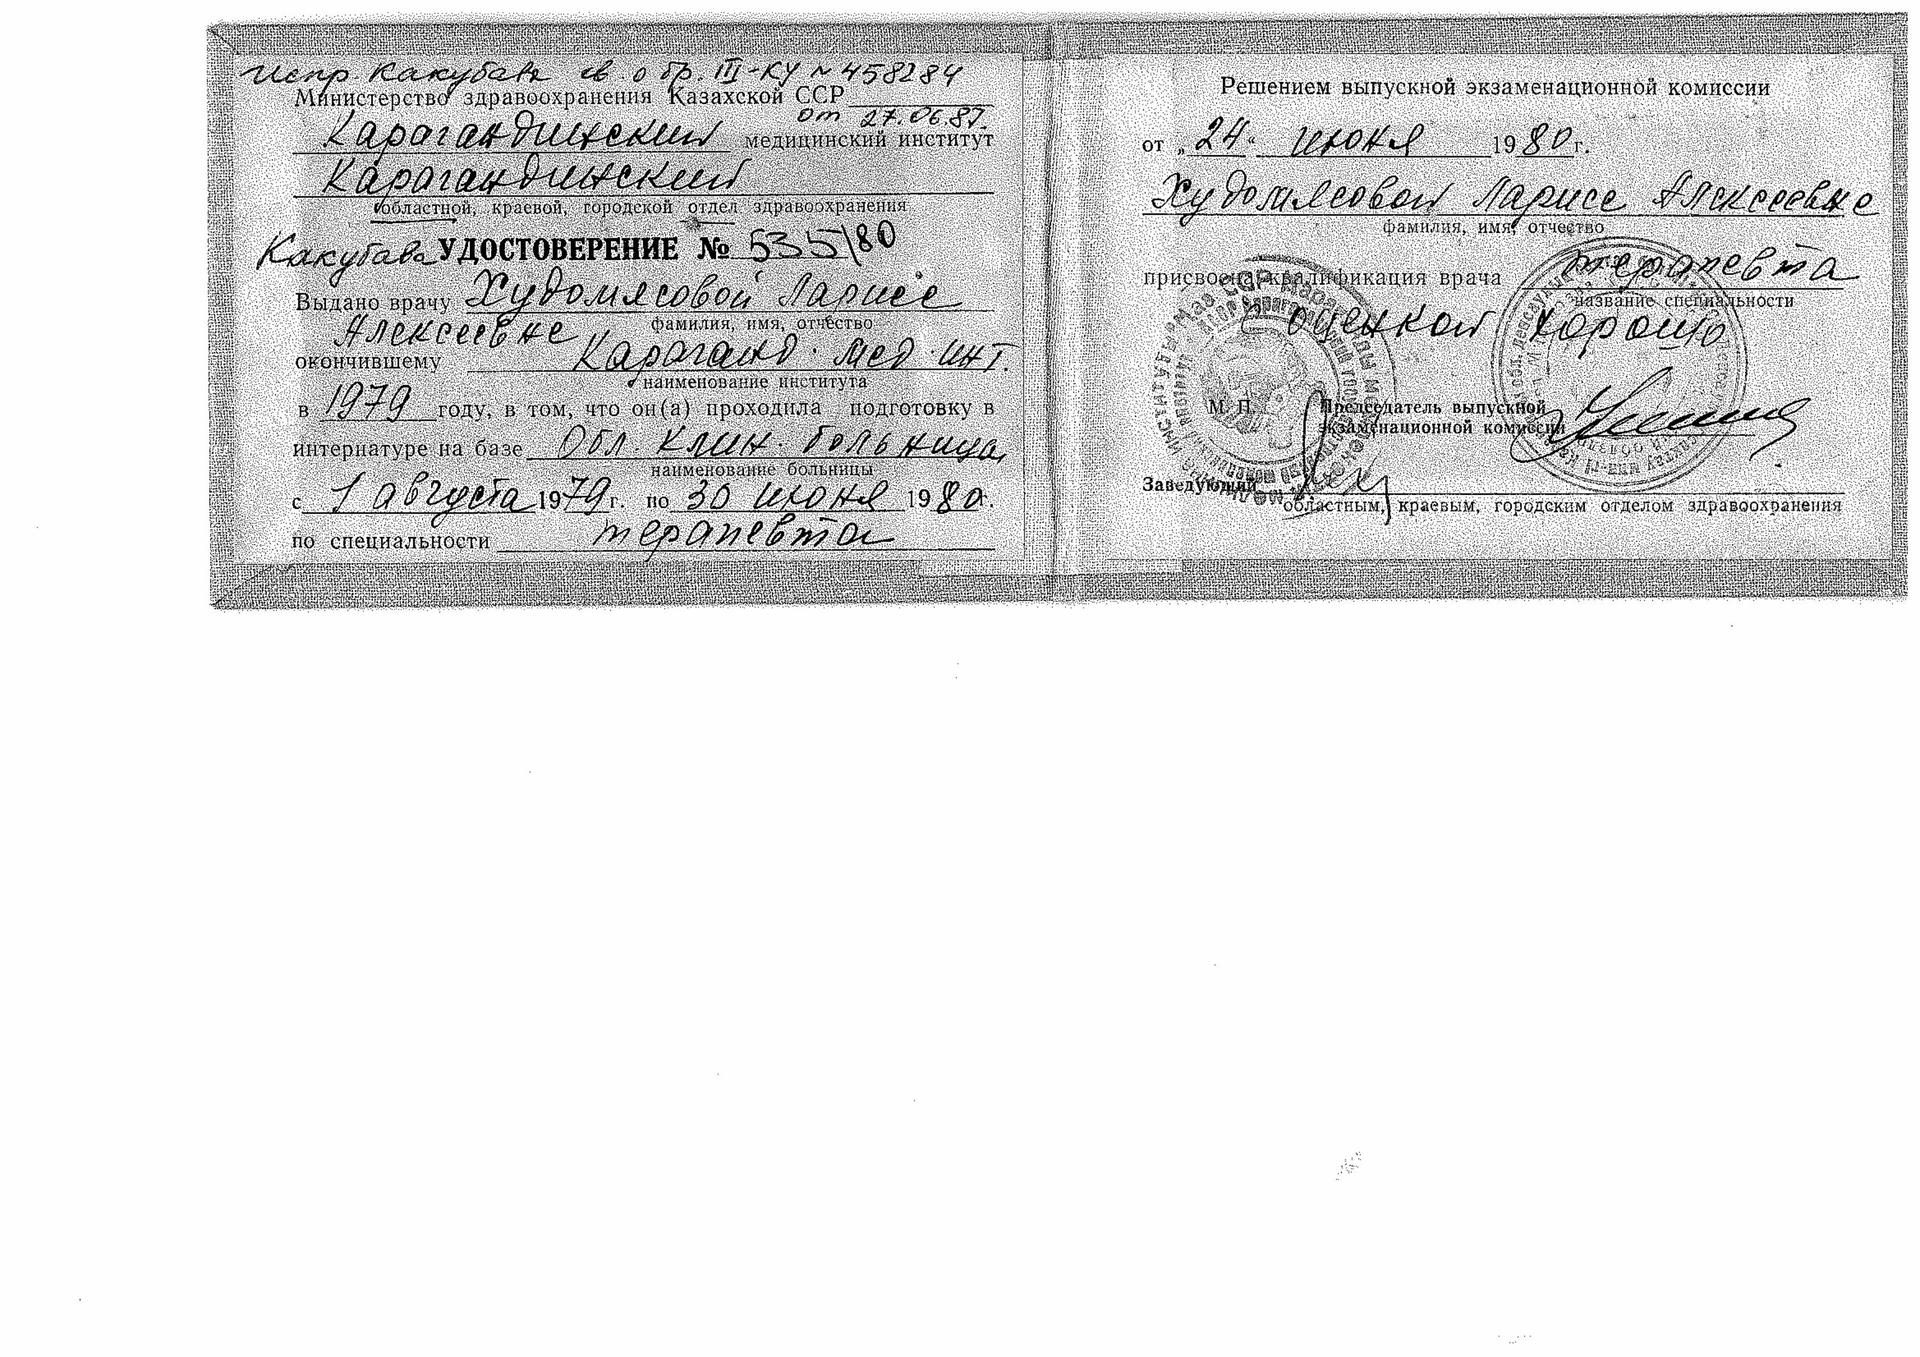 Испр. Какубава св. о бр. III-КУ № 458284
Министерство здравоохранения Казахской ССР
от 27.06.87.
Карагандинский медицинский институт
Карагандинский
областной, краевой, городской отдел здравоохранения
Какубава УДОСТОВЕРЕНИЕ № 535/80
Выдано врачу Худомясовой Ларисе
фамилия, имя, отчество
Алексеевне
окончившему Караганд. мед. инт.
наименование института
в 1979 году, в том, что он(а) проходила подготовку в
интернатуре на базе Обл. клин. больницы
наименование больницы
с 1 августа 1979 г. по 30 июня 1980 г.
по специальности терапевта
Решением выпускной экзаменационной комиссии
от „24“ июня 1980 г.
Худомясовой Ларисе Алексеевне
фамилия, имя, отчество
присвоена квалификация врача терапевта
название специальности
оценкой хорошо
М. П. Председатель выпускной
экзаменационной комиссии
Заведующий
областным, краевым, городским отделом здравоохранения